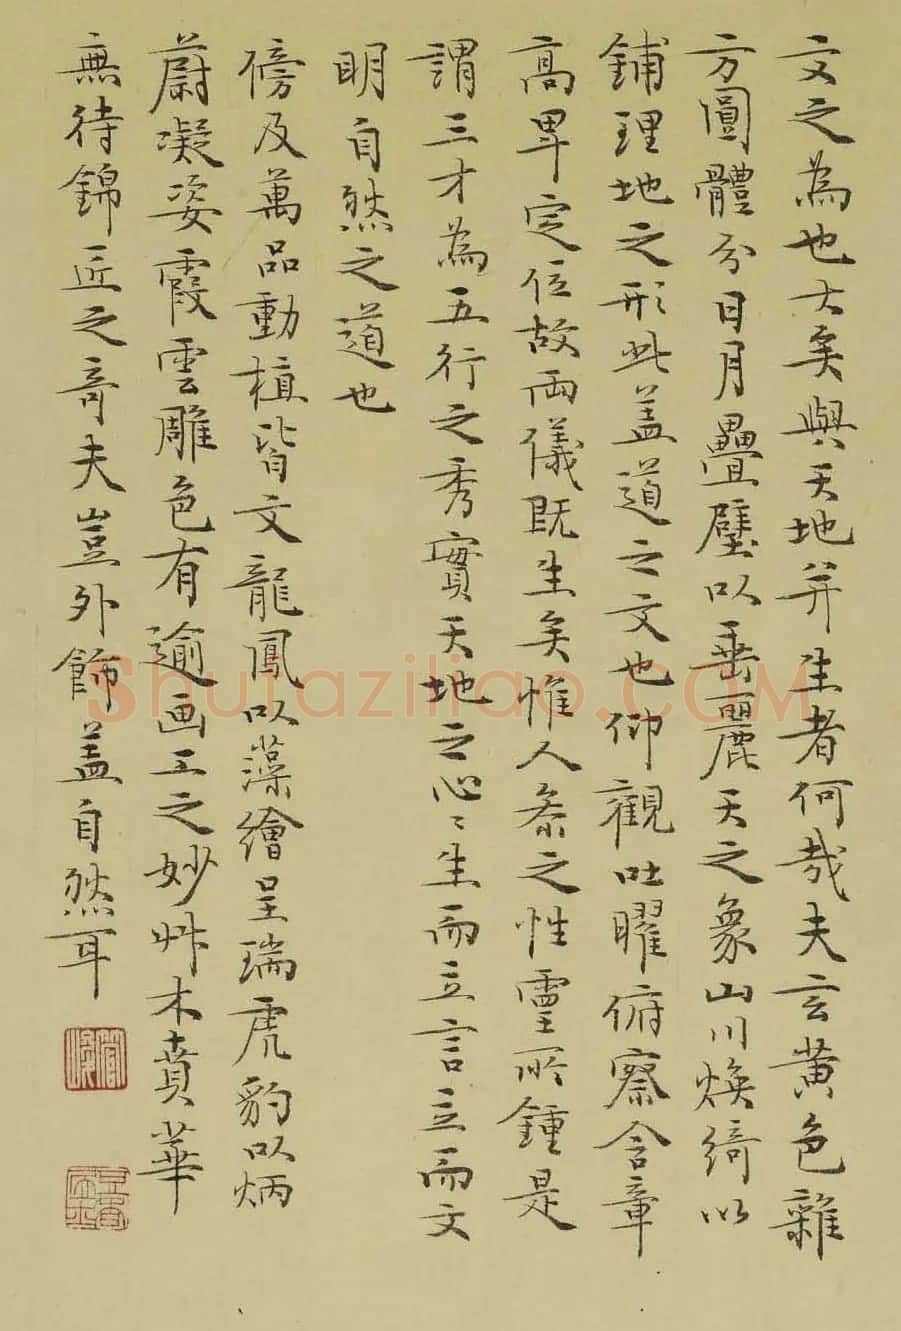 文之為也大矣與天地并生者何哉夫玄黃色雜
方圓體分日月疊璧以垂麗天之象山川煥綺以
鋪理地之形此盖道之文也仰觀吐曜俯察含章
高卑定位故兩儀既生矣惟人叅之性靈所鍾是
謂三才為五行之秀實天地之心々生而立言立而文
明自然之道也
傍及萬品動植皆文龍鳳以藻繪呈瑞虎豹以炳
蔚凝姿霞雲雕色有逾画工之妙艸木賁華
無待錦匠之奇夫豈外飾盖自然耳
Shufaziliao.COM